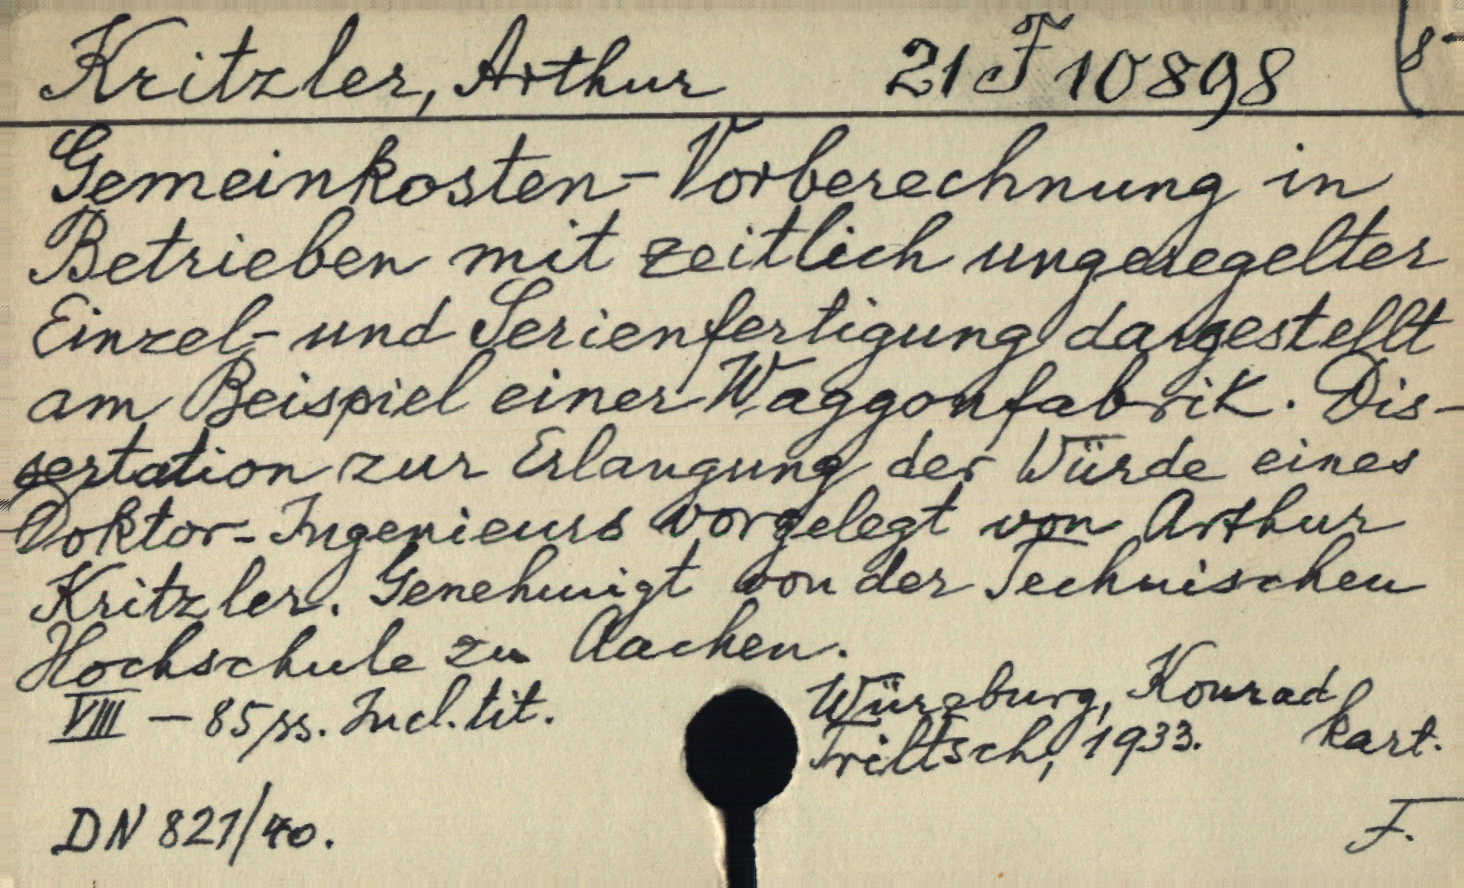 Kritzler, Arthur 21 F 10898 (8-
Gemeinkosten-Vorberechnung in
Betrieben mit zeitlich ungeregelter
Einzel- und Serienfertigung dargestellt
am Beispiel einer Waggonfabrik. Dis-
sertation zur Erlangung der Würde eines
Doktor-Ingenieurs vorgelegt von Arthur
Kritzler. Genehmigt von der Technischen
Hochschule zu Aachen.
VIII - 85 ss. Incl. tit. Würzburg, Konrad
Triltsch, 1933. kart.
DN 821/40. F.